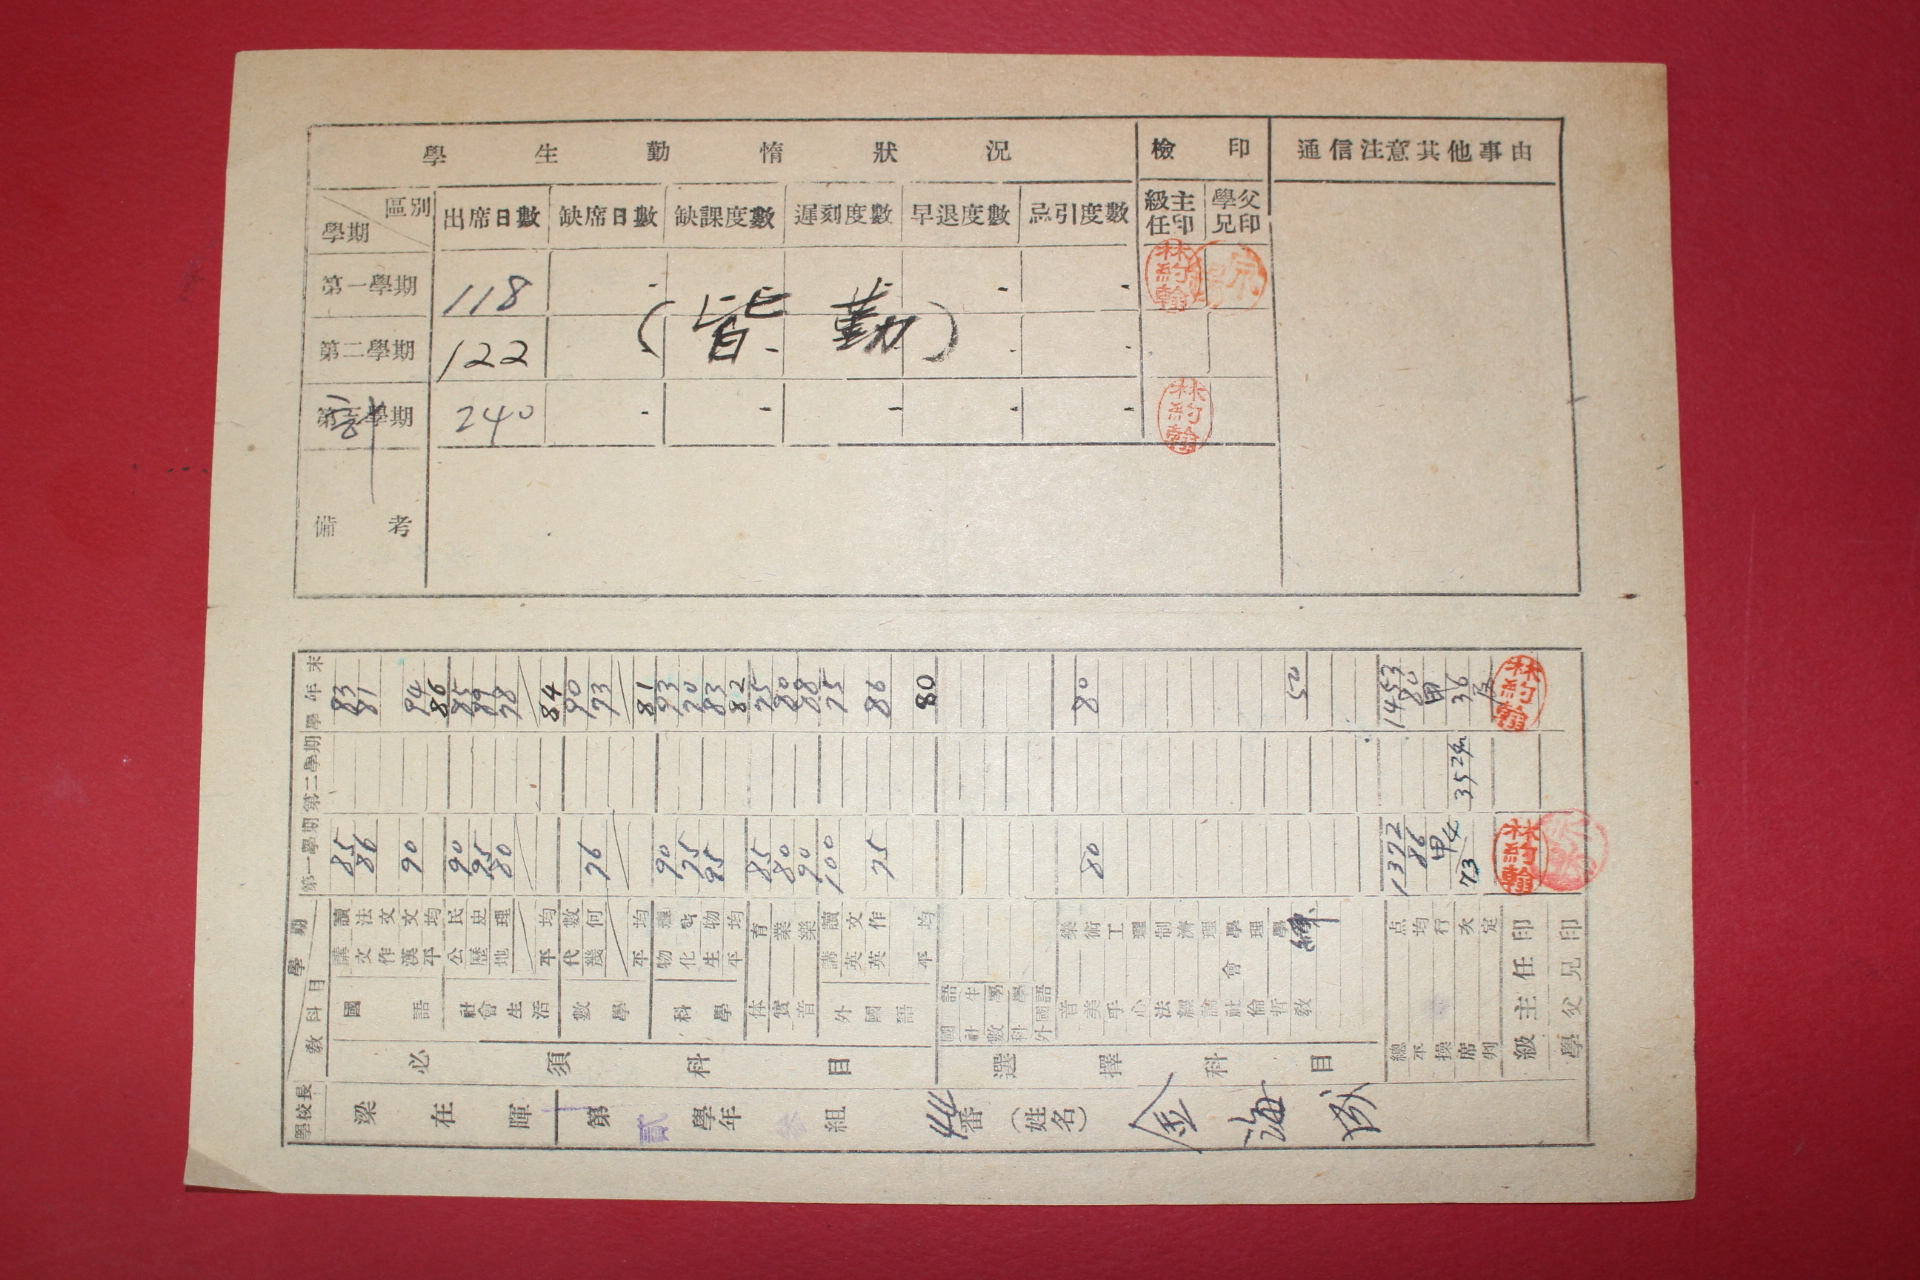 學生勤惰狀況
檢印
通信注意其他事由
區別
學期
出席日數
缺席日數
缺課度數
遲刻度數
早退度數
忌引度數
級主任印
學父兄印
第一學期
118
林約翰
第二學期
122
(皆 勤)
第三學期
計
240
林約翰
備考
學校長
梁在暉
第貳學年
組
44番
(姓名)
金海
教科目
學期
第一學期
第二學期
學年末
必須科目
國語
講讀 85 83
文法 86 81
作文
漢文 90 94
平均 86
社會生活
公民 90 85
歷史 95 89
地理 80 78
平均 84
數學
代數 90
幾何 76 73
平均 81
科學
物理 90 93
化學 75 70
生物 95 83
平均 82
体育 85 75
實業 80 80
音樂 90 88
外國語
講讀 100 75
英文
英作 75 86
平均 80
選擇科目
國語
社生
數學
科學
外國語
音樂
美術 80 80
手工
心理
法制
經濟
論理
社會學
倫理
哲學
敎練 50
總点 1372 1453
平均 86 80
操行 甲 甲
席次 4/73 35 36
判定
級主任印 林約翰 林約翰
學父兄印